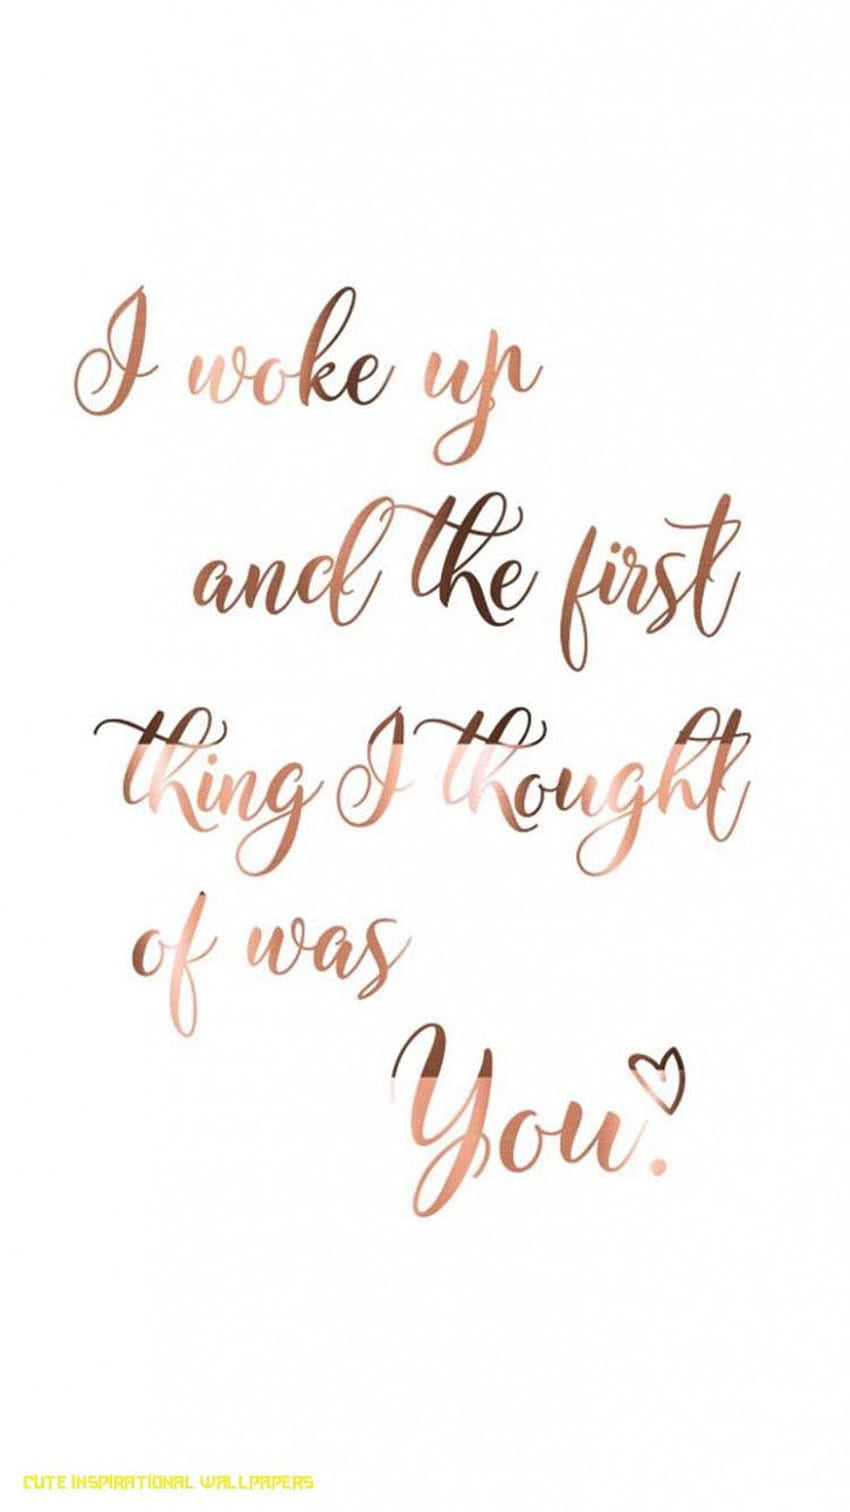 I woke up
and the first
thing I thought
of was
You.
CUTE INSPIRATIONAL WALLPAPERS